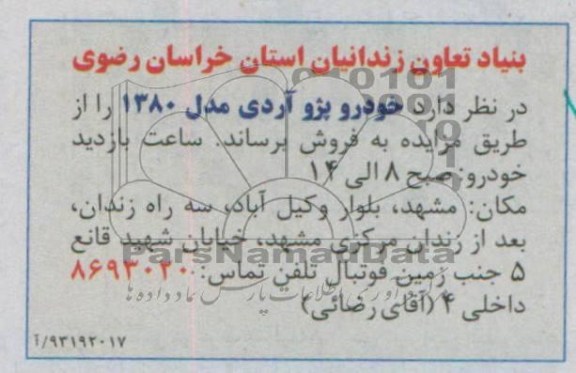 بنیاد تعاون زندانیان استان خراسان رضوی
در نظر دارد خودرو پژو آردی مدل ۱۳۸۰ را از
طریق مزایده به فروش برساند. ساعت بازدید
خودرو: صبح ۸ الی ۱۴
مکان: مشهد، بلوار وکیل آباد، سه راه زندان،
بعد از زندان مرکزی مشهد، خیابان شهید قانع
ParsNamadData
۵ جنب زمین فوتبال تلفن تماس: ۸۶۹۳۰۲۰
داخلی ۴ (آقای رضائی)
۹۳۱۹۲۰۱۷/آ